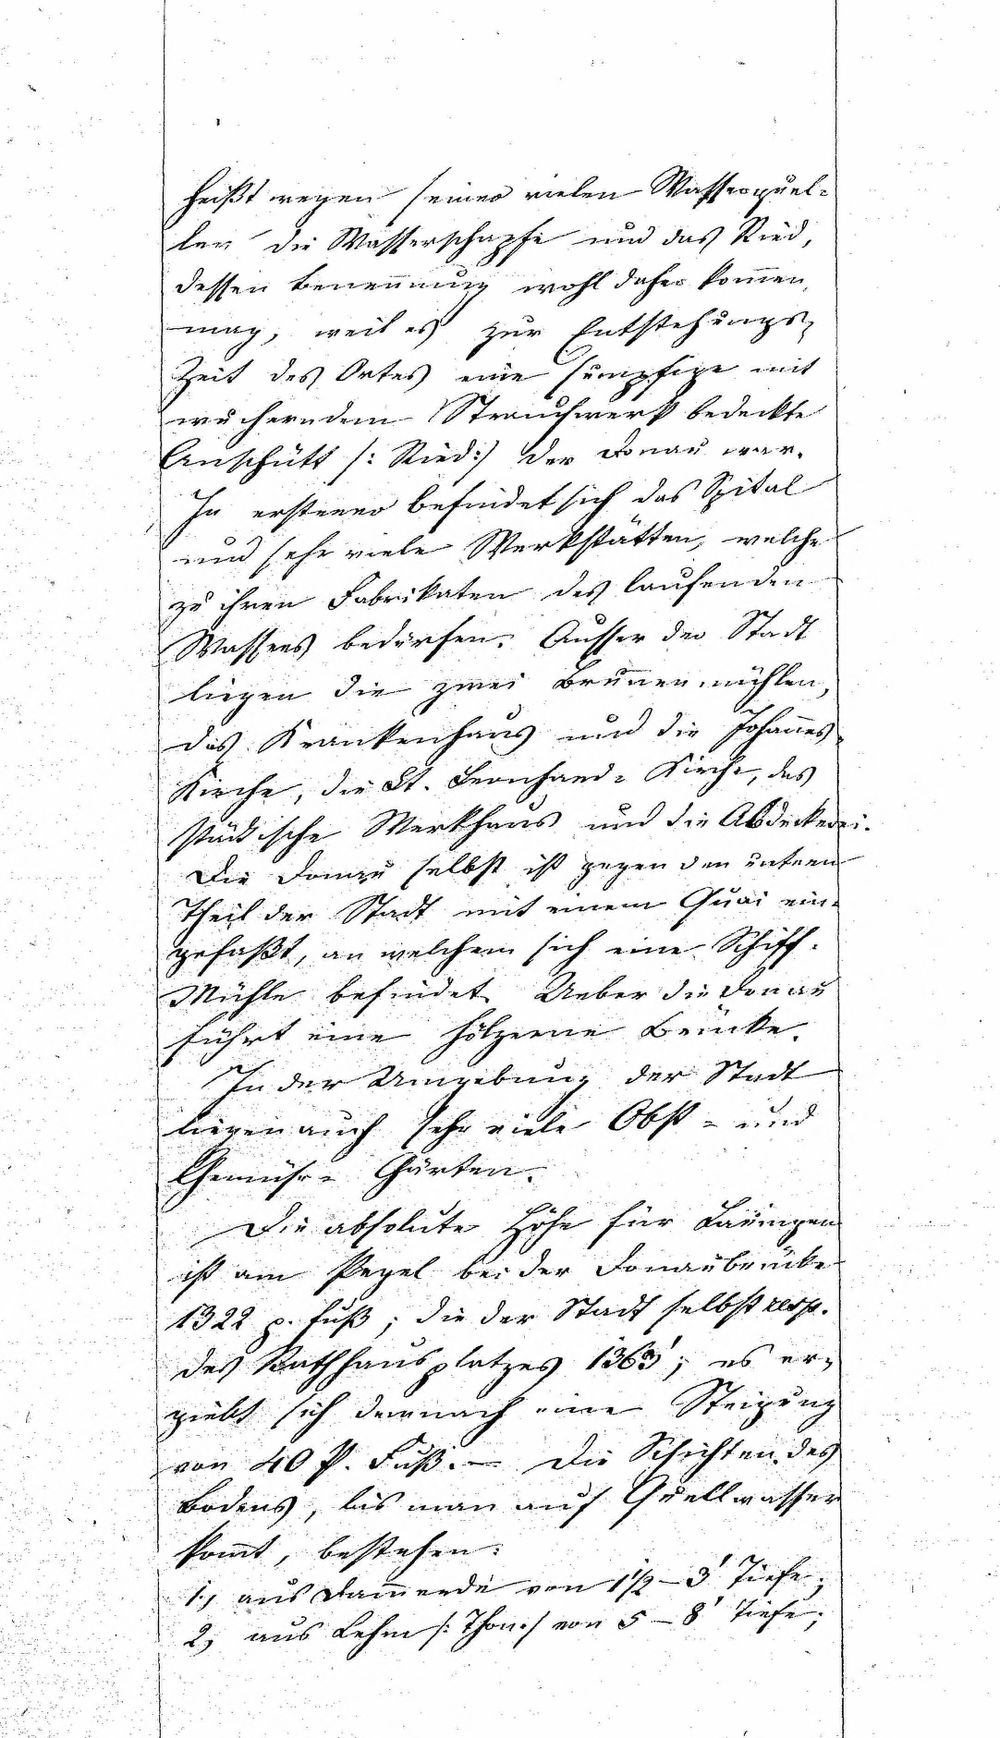 heißt wegen seiner vielen Wasserquel-
len die Wasserschapfe und das Ried,
dessen Benennung wohl daher kom̄en
mag, weil es zur Entstehungs-
Zeit des Ortes eine sümpfige mit
wucherndem Strauchwerk bedeckte
Anschütt /: Ried :/ der Donau war.
In ersterer befindet sich das Spital
und sehr viele Werkstätten, welche
zu ihren Fabrikaten des laufenden
Wassers bedürfen. Ausser der Stadt
liegen die zwei Brun̄enmühlen,
das Krankenhaus und die Johan̄es
Kirche, die St. Leonhard- Kirche, das
städtische Werkhaus und die Abdeckerei.
Die Donau selbst ist gegen den untern
Theil der Stadt mit einem Quai ein-
gefaßt, an welchem sich eine Schiff-
Mühle befindet. Ueber die Donau
führt eine hölzerne Brücke.
In der Umgebung der Stadt
liegen auch sehr viele Obst- und
Gemüse- Gärten.
Die absolute Höhe für Lauingen
ist am Pegel bei der Donaubrücke
1322 p. Fuß; die der Stadt selbst resp.
des Rathhausplatzes 1363'; es er-
giebt sich demnach eine Steigung
von 40 P. Fuß. — Die Schichten des
Bodens, bis man auf Quellwasser
kom̄t, bestehen:
1, aus Dam̄erde von 1½ – 3' Tiefe;
2, aus Lehm /: Thon :/ von 5 – 8' Tiefe;